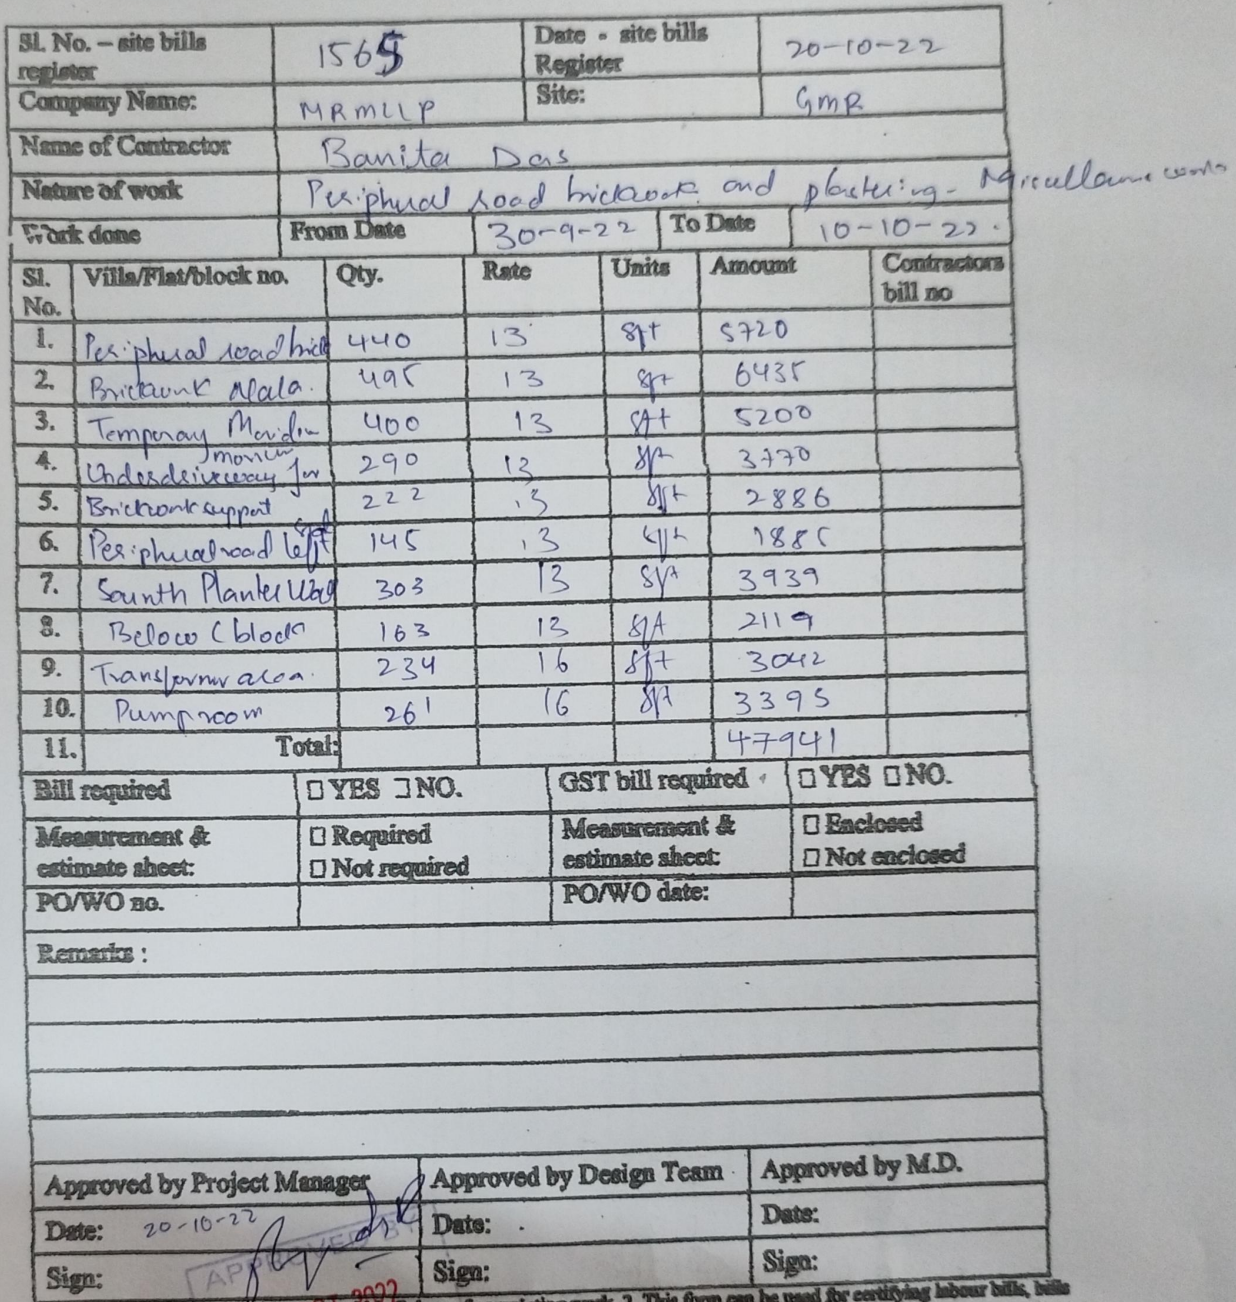 Sl. No. – site bills register 1565 Date - site bills Register 20-10-22
Company Name: MRMLLP Site: GMR
Name of Contractor Banita Das
Nature of work Peripheral road brickwork and plastering -
Work done From Date 30-9-22 To Date 10-10-22.
Sl. No. Villa/Flat/block no. Qty. Rate Units Amount Contractors bill no
1. Peripheral road brick 440 13 sft 5720
2. Brickwork Nala. 495 13 sft 6435
3. Temporay 400 13 sft 5200
4. Underdriveway for 290 13 sft 3770
5. Brickwork support 222 13 sft 2886
6. Peripheral road left 145 13 sft 1885
7. Sounth Planter Wall 303 13 sft 3939
8. Below C block 163 13 sft 2119
9. Transformer area. 234 16 sft 3042
10. Pump room 261 16 sft 3395
11. Total: 47941
Bill required □ YES □ NO. GST bill required □ YES □ NO.
Measurement & estimate sheet: □ Required □ Not required Measurement & estimate sheet: □ Enclosed □ Not enclosed
PO/WO no. PO/WO date:
Remarks :
Approved by Project Manager Approved by Design Team Approved by M.D.
Date: 20-10-22 Date: Date:
Sign: APPROVED BY Sign: Sign:
2022
2. This form can be used for certifying labour bills, bills